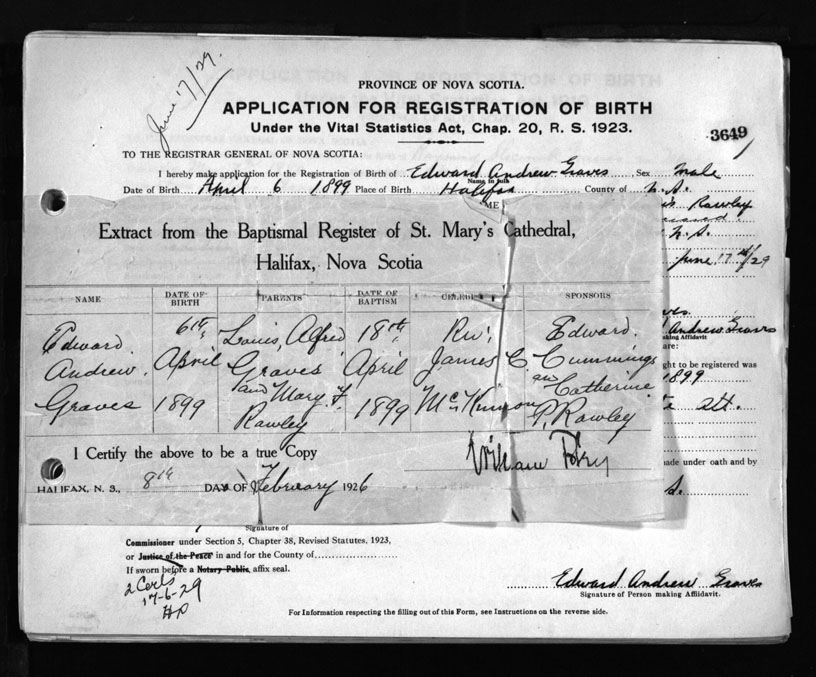 June 17/29.
PROVINCE OF NOVA SCOTIA.
APPLICATION FOR REGISTRATION OF BIRTH
Under the Vital Statistics Act, Chap. 20, R. S. 1923.
3649
TO THE REGISTRAR GENERAL OF NOVA SCOTIA:
I hereby make application for the Registration of Birth of Edward Andrew Graves Sex Male
Name in full
Date of Birth April 6 1899 Place of Birth Halifax County of
ME
Rawley
N.S.
June 17th/29
Extract from the Baptismal Register of St. Mary's Cathedral,
Halifax, Nova Scotia
NAME DATE OF BIRTH PARENTS DATE OF BAPTISM SPONSORS
Edward 6th, Louis, Alfred 18th, Rev, Edward.
Andrew. April Graves April James C. Cummings
Graves 1899 and Mary F. 1899 and Catherine
Rawley P. Rawley
Andrew Graves
making Affidavit
are:
ght to be registered was
1899
att.
I Certify the above to be a true Copy
made under oath and by
HALIFAX, N. S., 8th DAY OF February 1926
S.
Signature of
Commissioner under Section 5, Chapter 38, Revised Statutes, 1923,
or Justice of the Peace in and for the County of
If sworn before a Notary Public, affix seal.
2 Certs
17-6-29
Edward Andrew Graves
Signature of Person making Affidavit.
For Information respecting the filling out of this Form, see Instructions on the reverse side.